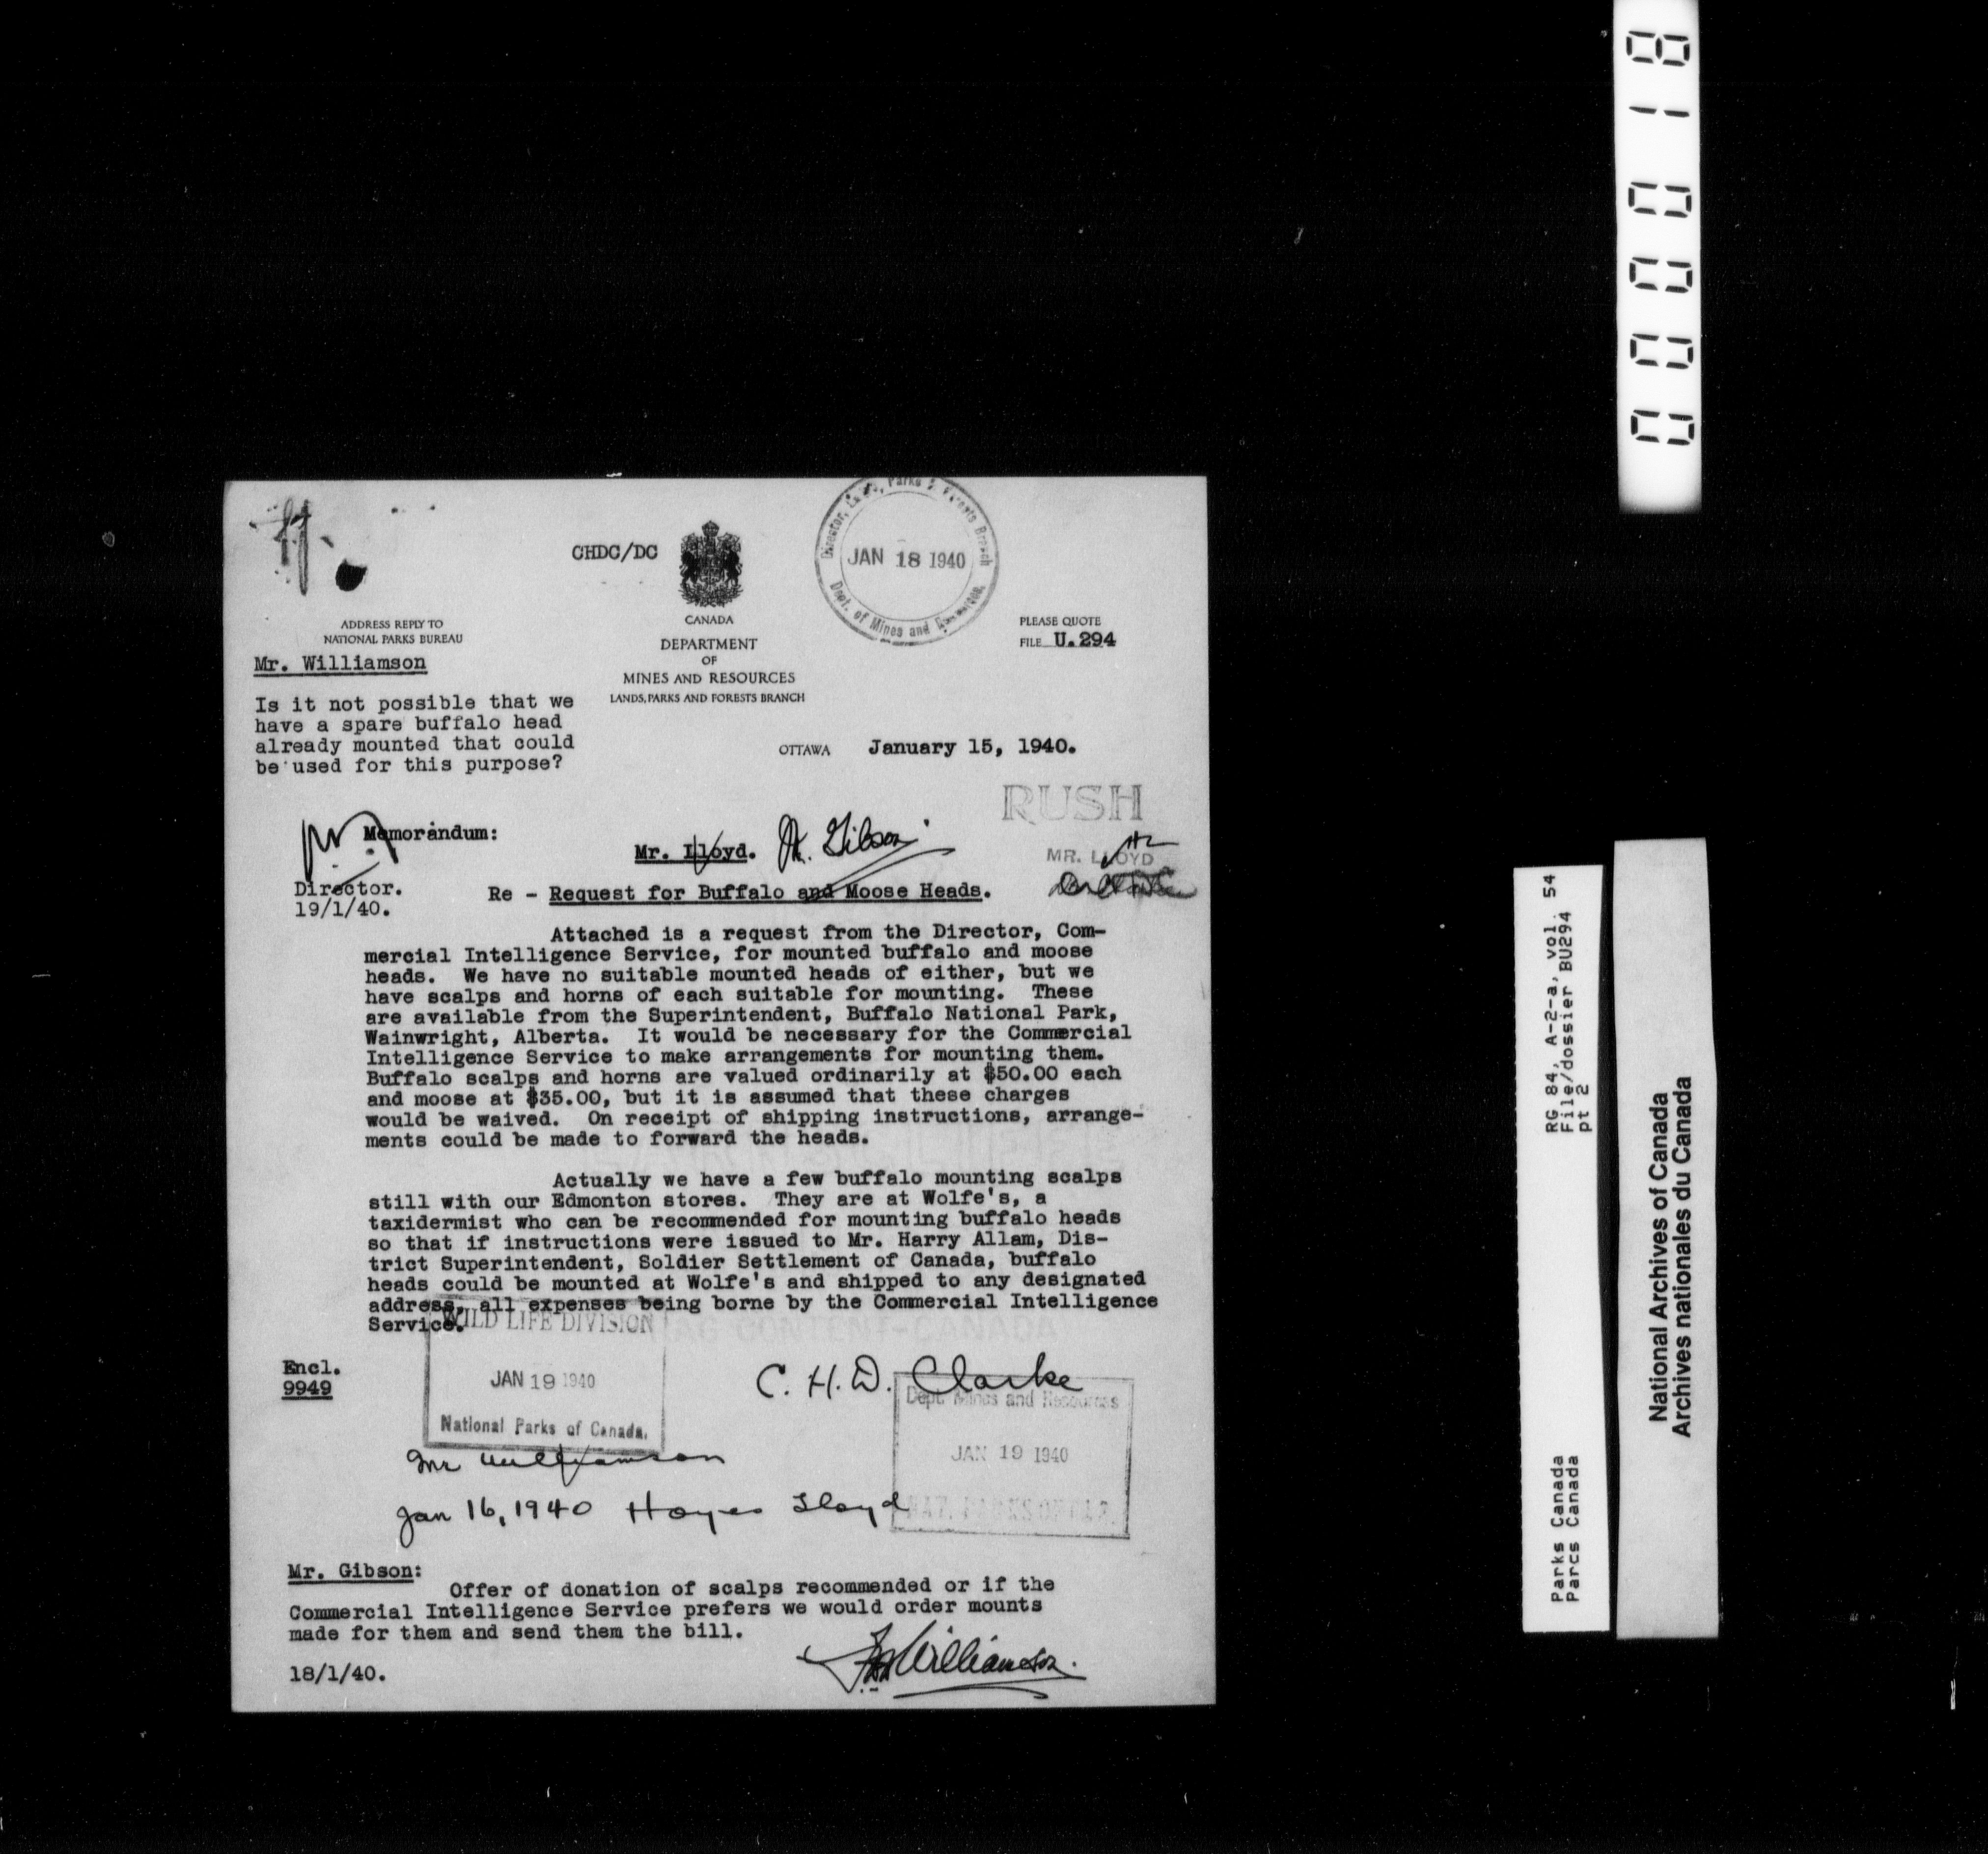 CHDC/DC
Director, Parks & Forests Branch
JAN 18 1940
Dept. of Mines and Resources.
ADDRESS REPLY TO
NATIONAL PARKS BUREAU
CANADA
DEPARTMENT
OF
MINES AND RESOURCES
LANDS, PARKS AND FORESTS BRANCH
PLEASE QUOTE
FILE U.294
Mr. Williamson
Is it not possible that we
have a spare buffalo head
already mounted that could
be used for this purpose?
OTTAWA January 15, 1940.
RUSH
Memorandum:
Mr. Lloyd. Mr. Gibson
MR. LLOYD
Director.
19/1/40.
Re - Request for Buffalo and Moose Heads.
Attached is a request from the Director, Com-
mercial Intelligence Service, for mounted buffalo and moose
heads. We have no suitable mounted heads of either, but we
have scalps and horns of each suitable for mounting. These
are available from the Superintendent, Buffalo National Park,
Wainwright, Alberta. It would be necessary for the Commercial
Intelligence Service to make arrangements for mounting them.
Buffalo scalps and horns are valued ordinarily at $50.00 each
and moose at $35.00, but it is assumed that these charges
would be waived. On receipt of shipping instructions, arrange-
ments could be made to forward the heads.
Actually we have a few buffalo mounting scalps
still with our Edmonton stores. They are at Wolfe's, a
taxidermist who can be recommended for mounting buffalo heads
so that if instructions were issued to Mr. Harry Allam, Dis-
trict Superintendent, Soldier Settlement of Canada, buffalo
heads could be mounted at Wolfe's and shipped to any designated
address, all expenses being borne by the Commercial Intelligence
Service.
WILD LIFE DIVISION
JAN 19 1940
National Parks of Canada.
Encl.
9949
C. H. D. Clarke
Dept. Mines and Resources
JAN 19 1940
NAT. PARKS OF CAN.
Mr Williamson
Jan 16, 1940 Hoyes Lloyd
Mr. Gibson:
Offer of donation of scalps recommended or if the
Commercial Intelligence Service prefers we would order mounts
made for them and send them the bill.
18/1/40.
Williamson.
000018
RG 84, A-2-a, vol. 54
File/dossier BU294
pt 2
Parks Canada
Parcs Canada
National Archives of Canada
Archives nationales du Canada